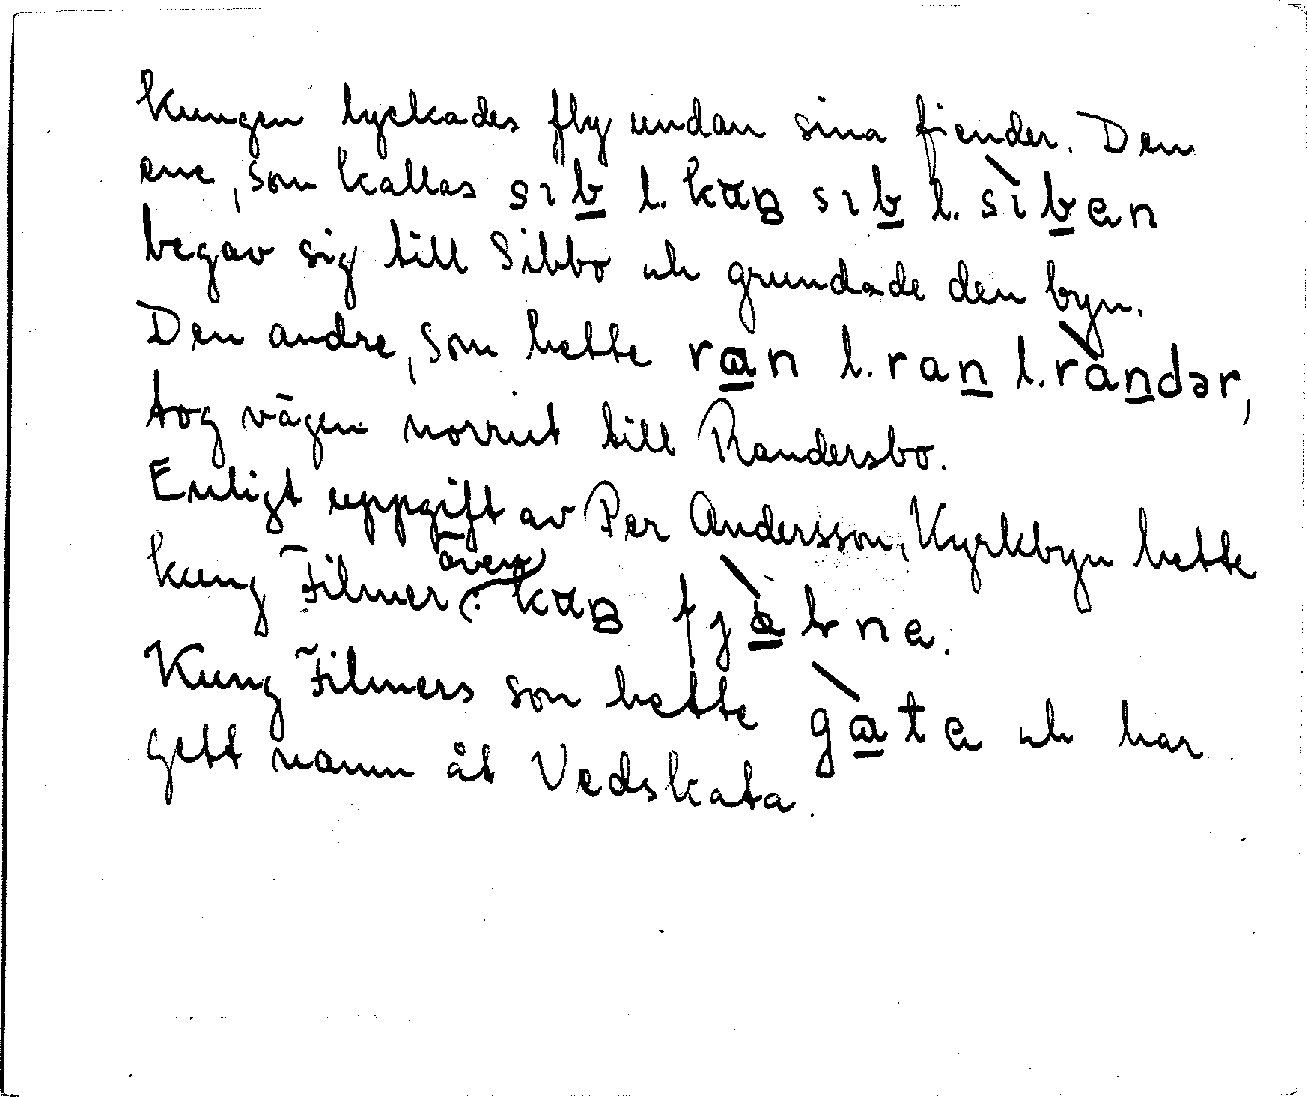 kungen lyckades fly undan sina fiender. Den
ene, som kallas sib̲ l. kuŋ sıb̲ l. sìb̲en
begav sig till Sibbo och grundade den byn.
Den andre, som hette ra̲n l. ran̲ l. ràn̲dər,
tog vägen norrut till Randersbo.
Enligt uppgift av Per Andersson, Kyrkbyn hette
kung Filmer (även: kuŋ fjæ̲̀lme.
Kung Filmers son hette gà̲te och har
gett namn åt Vedskata.